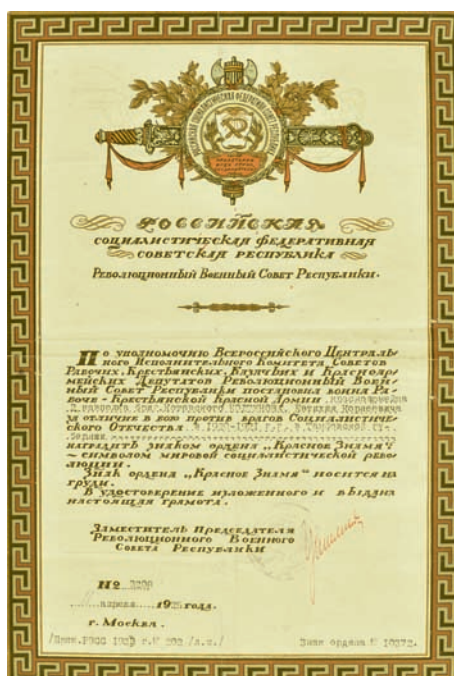 РОССИЙСКАЯ
СОЦИАЛИСТИЧЕСКАЯ ФЕДЕРАТИВНАЯ
СОВЕТСКАЯ РЕСПУБЛИКА
РЕВОЛЮЦИОННЫЙ ВОЕННЫЙ СОВЕТ РЕСПУБЛИКИ.
По уполномочию Всероссийского Централь-
ного Исполнительного Комитета Советов
Рабочих, Крестьянских, Казачьих и Красноар-
мейских Депутатов Революционный Воен-
ный Совет Республики постановил воина Ра-
боче-Крестьянской Красной Армии
за отличие в бою против врагов Социалистиче-
ского Отечества в 1920-1921 г.г. в
наградить знаком ордена „Красное Знамя"
– символом мировой социалистической рево-
люции.
Знак ордена „Красное Знамя" носится на
груди.
В удостоверение изложенного и выдана
настоящая грамота.
Заместитель Председателя
Революционного Военного
Совета Республики
№
апреля 19 года.
г. Москва.
Знак ордена №